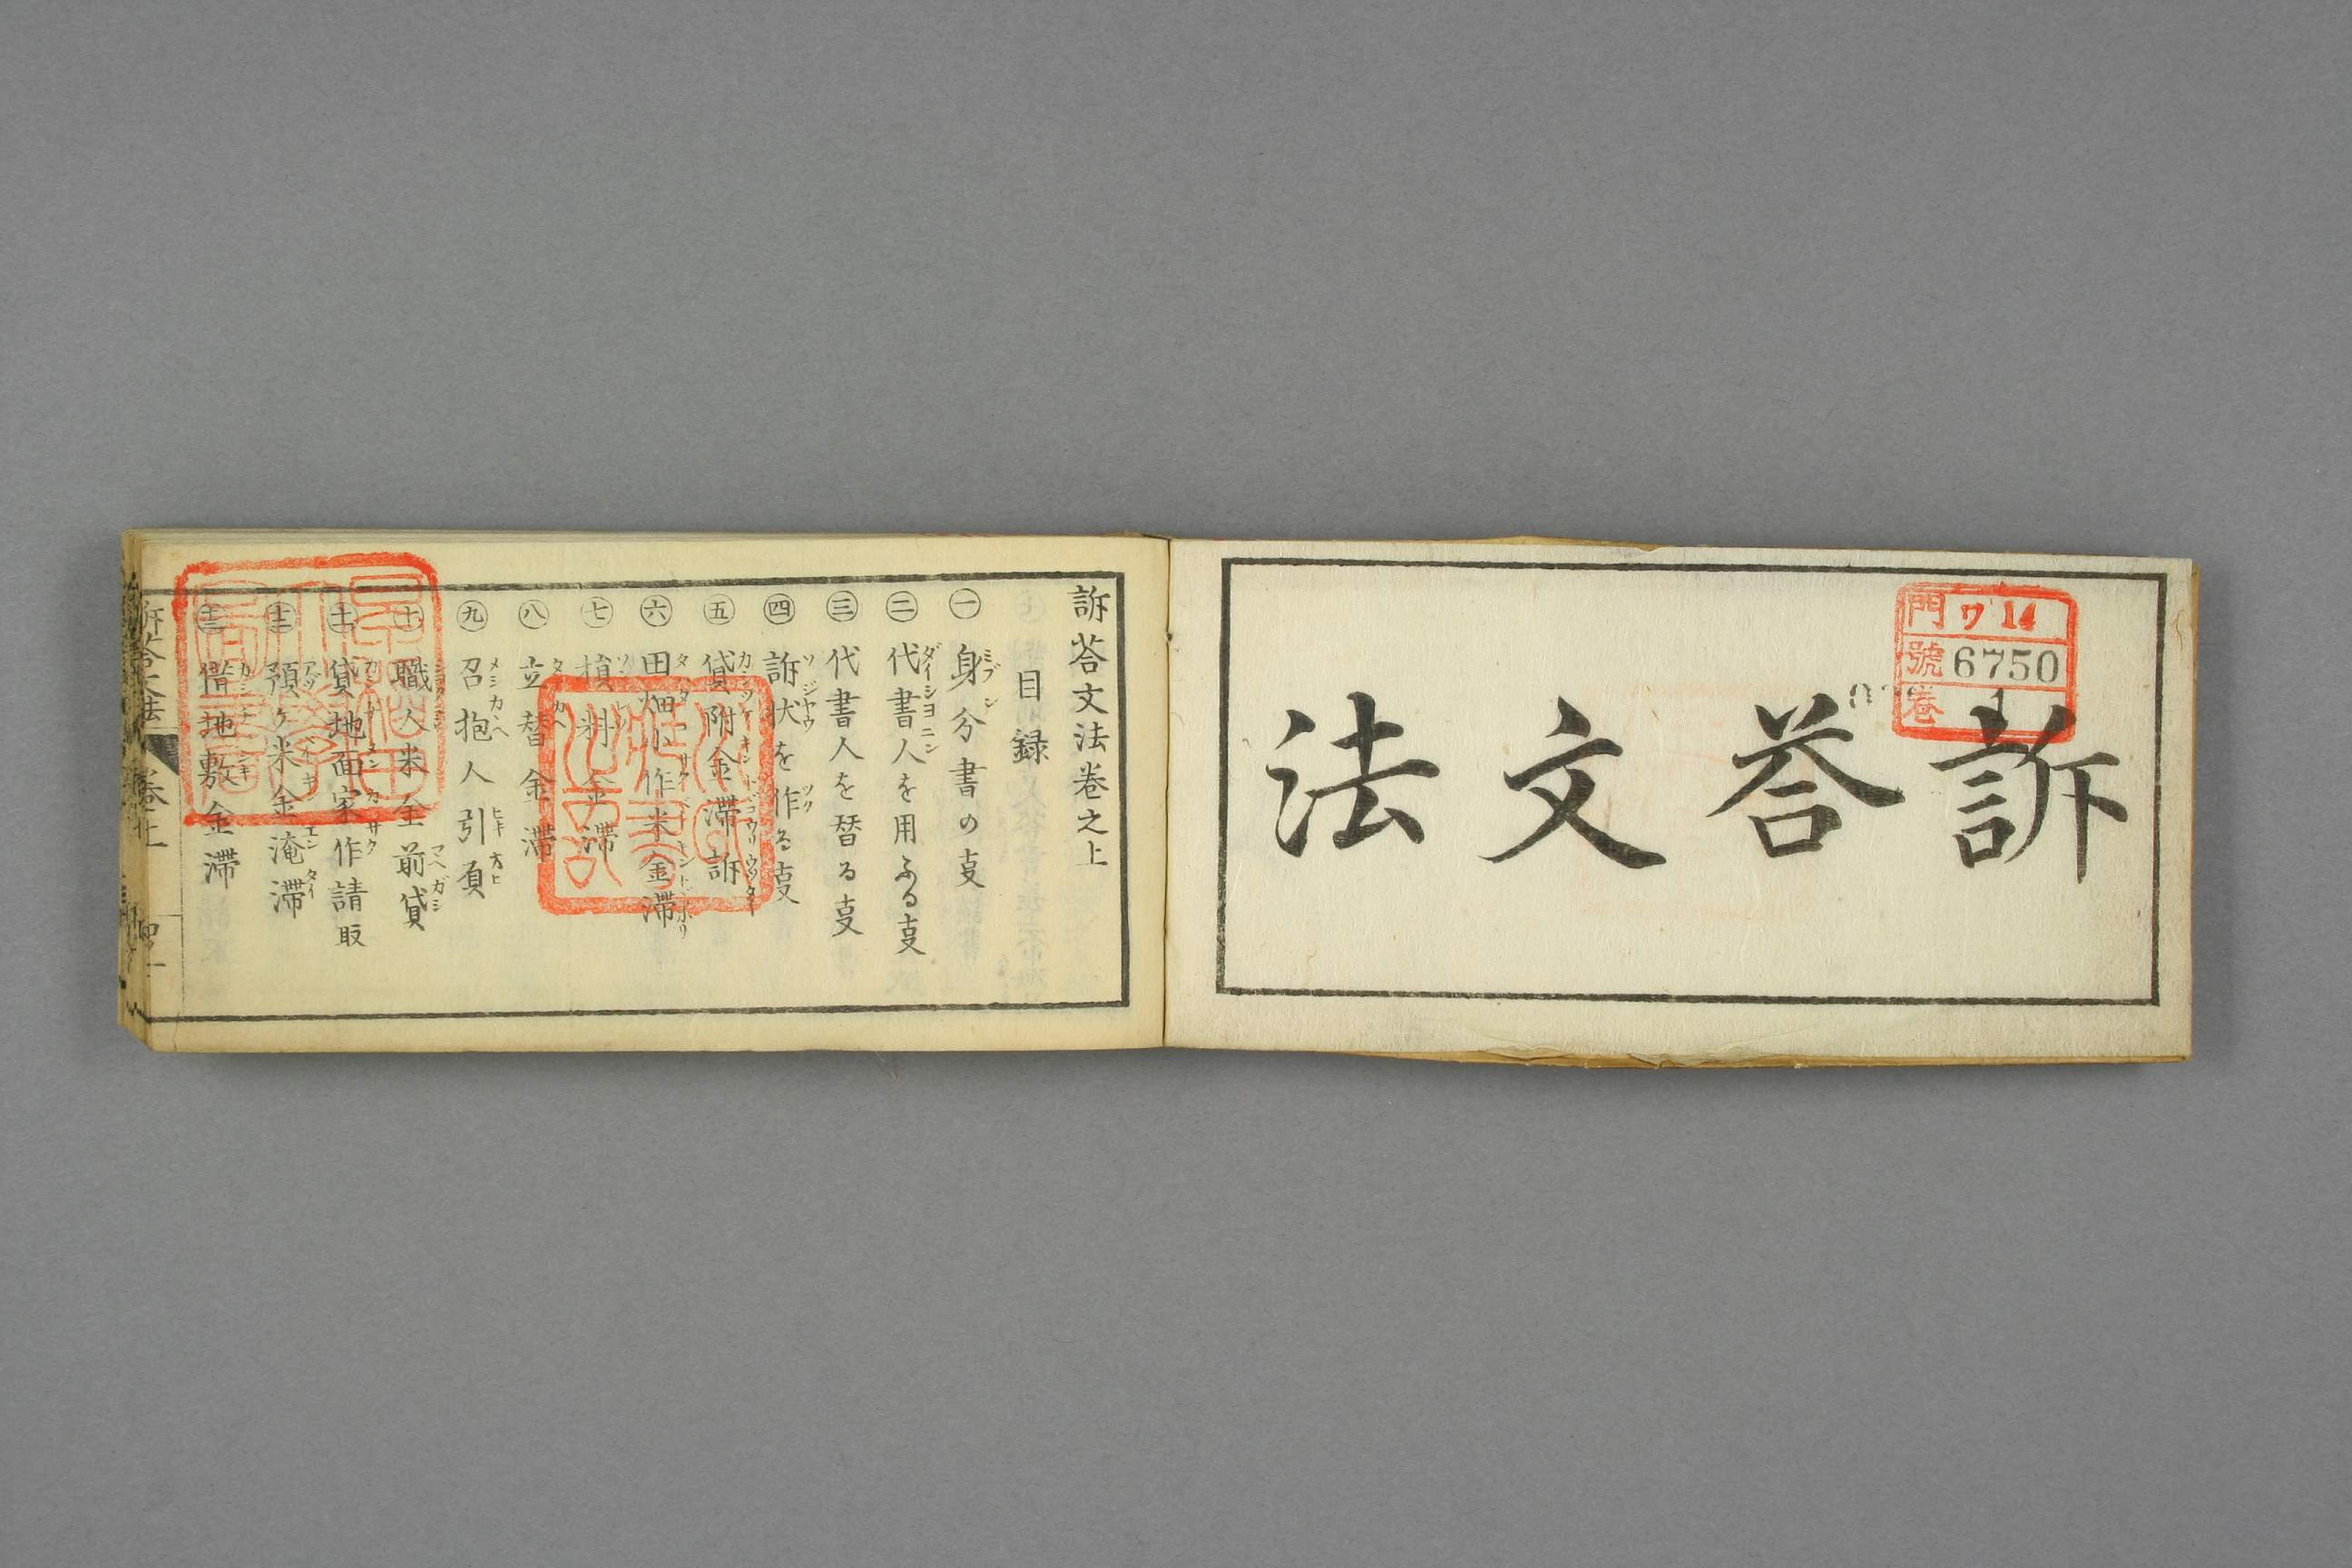 訴荅文法
門 ワ 14
號 6750
卷 1
訴荅文法卷之上
目録
㊀ 身分書の㕝
㊁ 代書人を用ふる㕝
㊂ 代書人を替る㕝
㊃ 訴状を作る㕝
㊄ 貸附金滞訴
㊅ 田畑小作米金滞
㊆ 損料金滞
㊇ 立替金滞
㊈ 召抱人引負
㊉ 職人米金前貸
十一 貸地面家作請取
十二 預ケ米金淹滞
十三 借地敷金滞